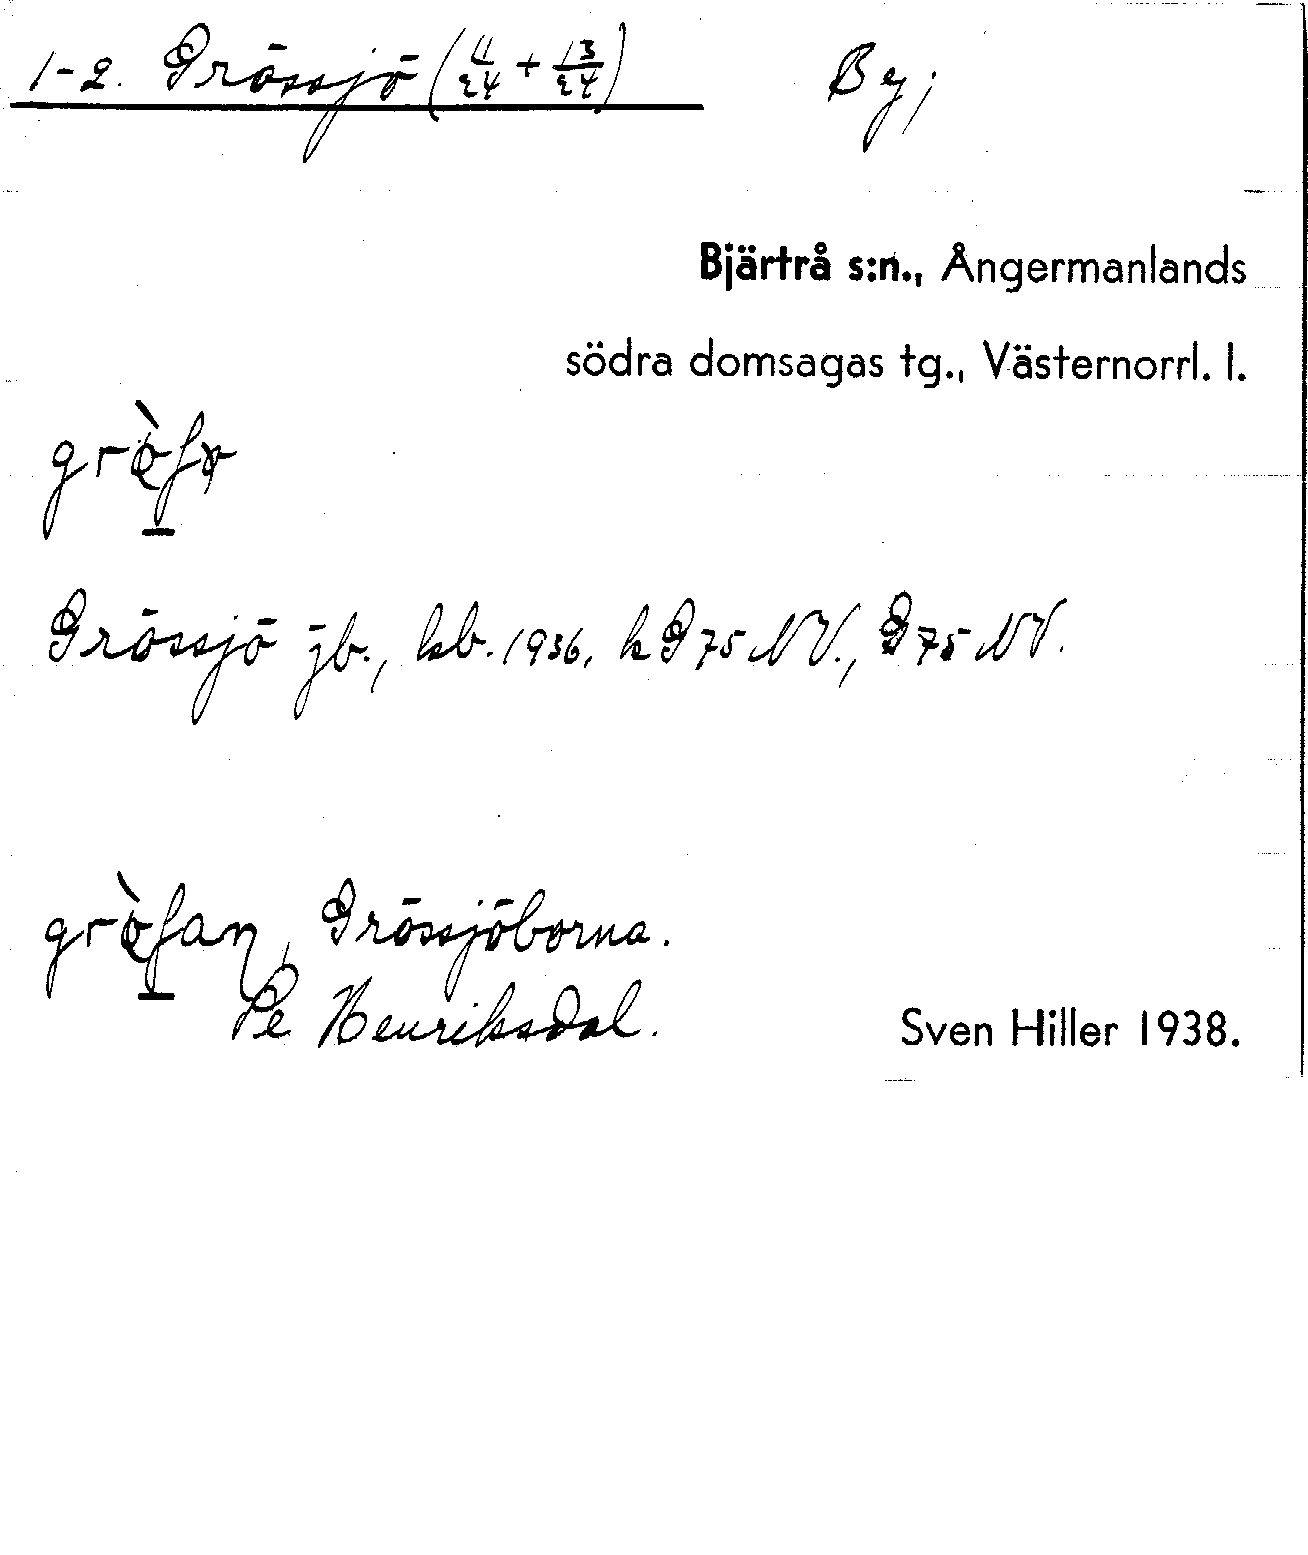 1-2. Grössjö (11/24 + 13/24) By;
Bjärtrå s:n., Ångermanlands
södra domsagas tg., Västernorrl. l.
Grössjö jb., kb. 1936, k G 75 NV., G 75 NV.
Grössjöborna.
Pe Henriksdal.
Sven Hiller 1938.